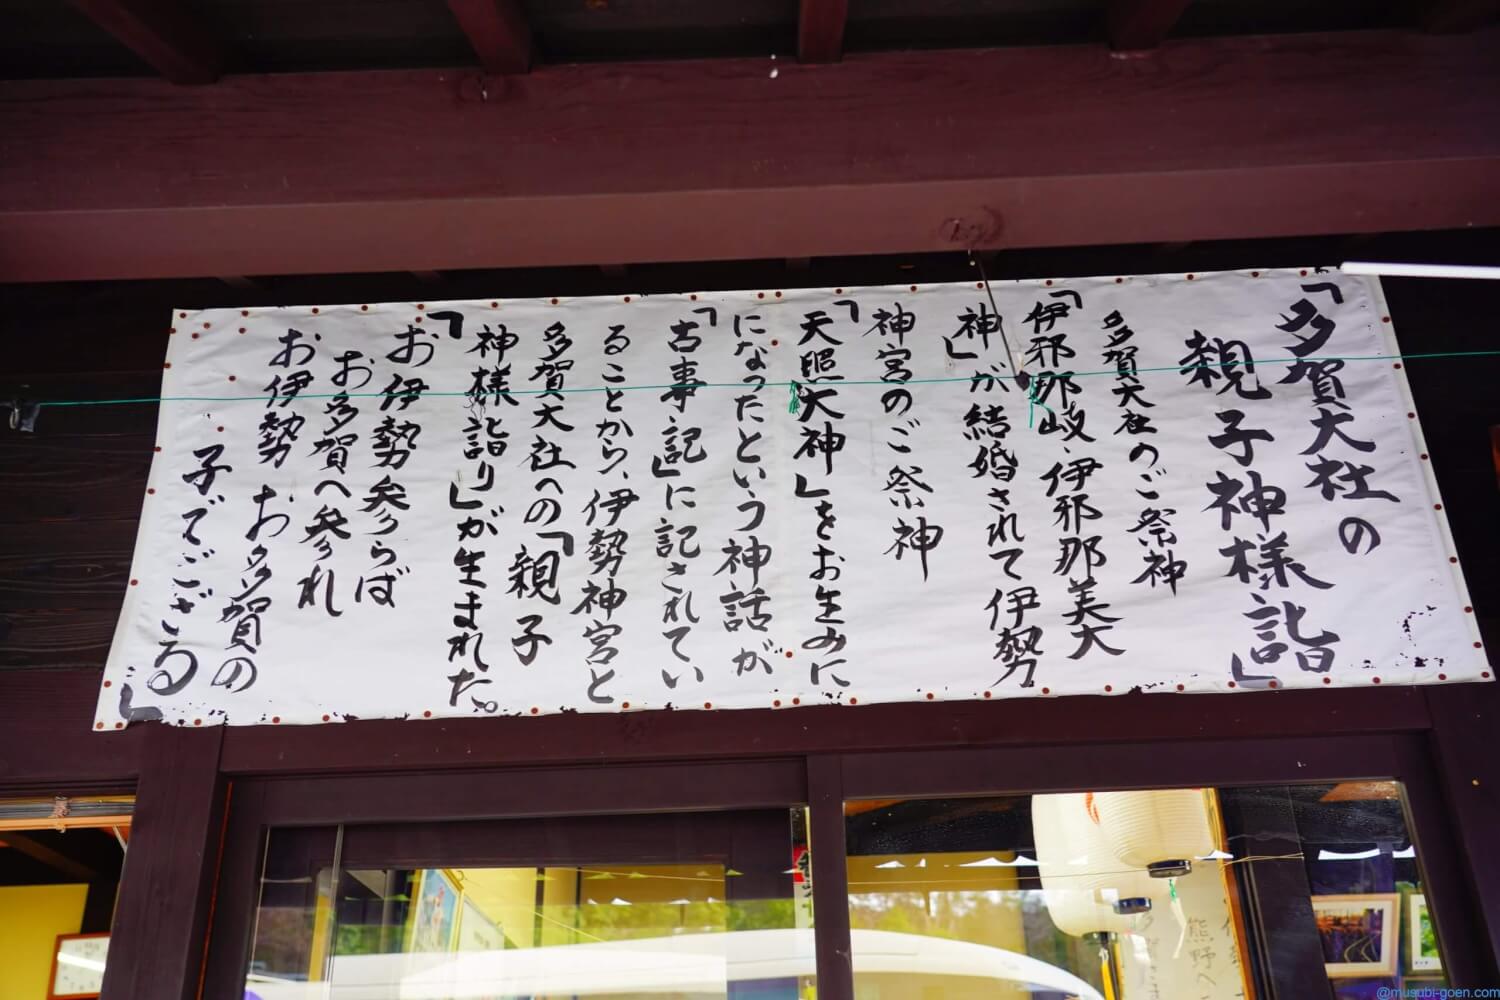 「多賀大社の
親子神様詣」
多賀大社のご祭神
「伊邪那岐・伊邪那美大
神」が結婚されて伊勢
神宮のご祭神
「天照大神」をお生みに
になったという神話が
「古事記」に記されてい
ることから、伊勢神宮と
多賀大社への「親子
神様詣り」が生まれた。
「お伊勢参らば
お多賀へ参れ
お伊勢 お多賀の
子でござる」
熊野へ
@musubi-goen.com